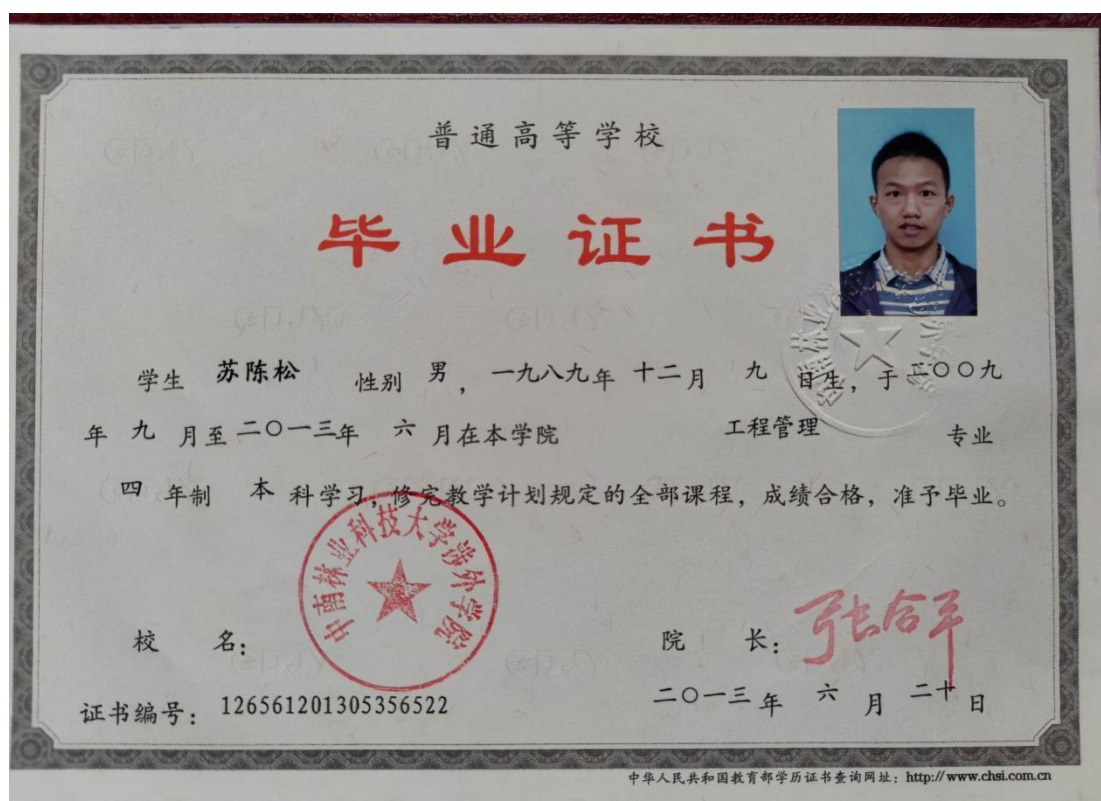 普通高等学校
毕业证书
学生 苏陈松 性别 男，一九八九年 十二月 九 日生，于二〇〇九
年 九 月至二〇一三年 六 月在本学院 工程管理 专业
四 年制 本 科学习，修完教学计划规定的全部课程，成绩合格，准予毕业。
中南林业科技大学涉外学院
校 名： 院 长：张合平
证书编号：126561201305356522 二〇一三年 六 月 二十日
中华人民共和国教育部学历证书查询网址：http://www.chsi.com.cn